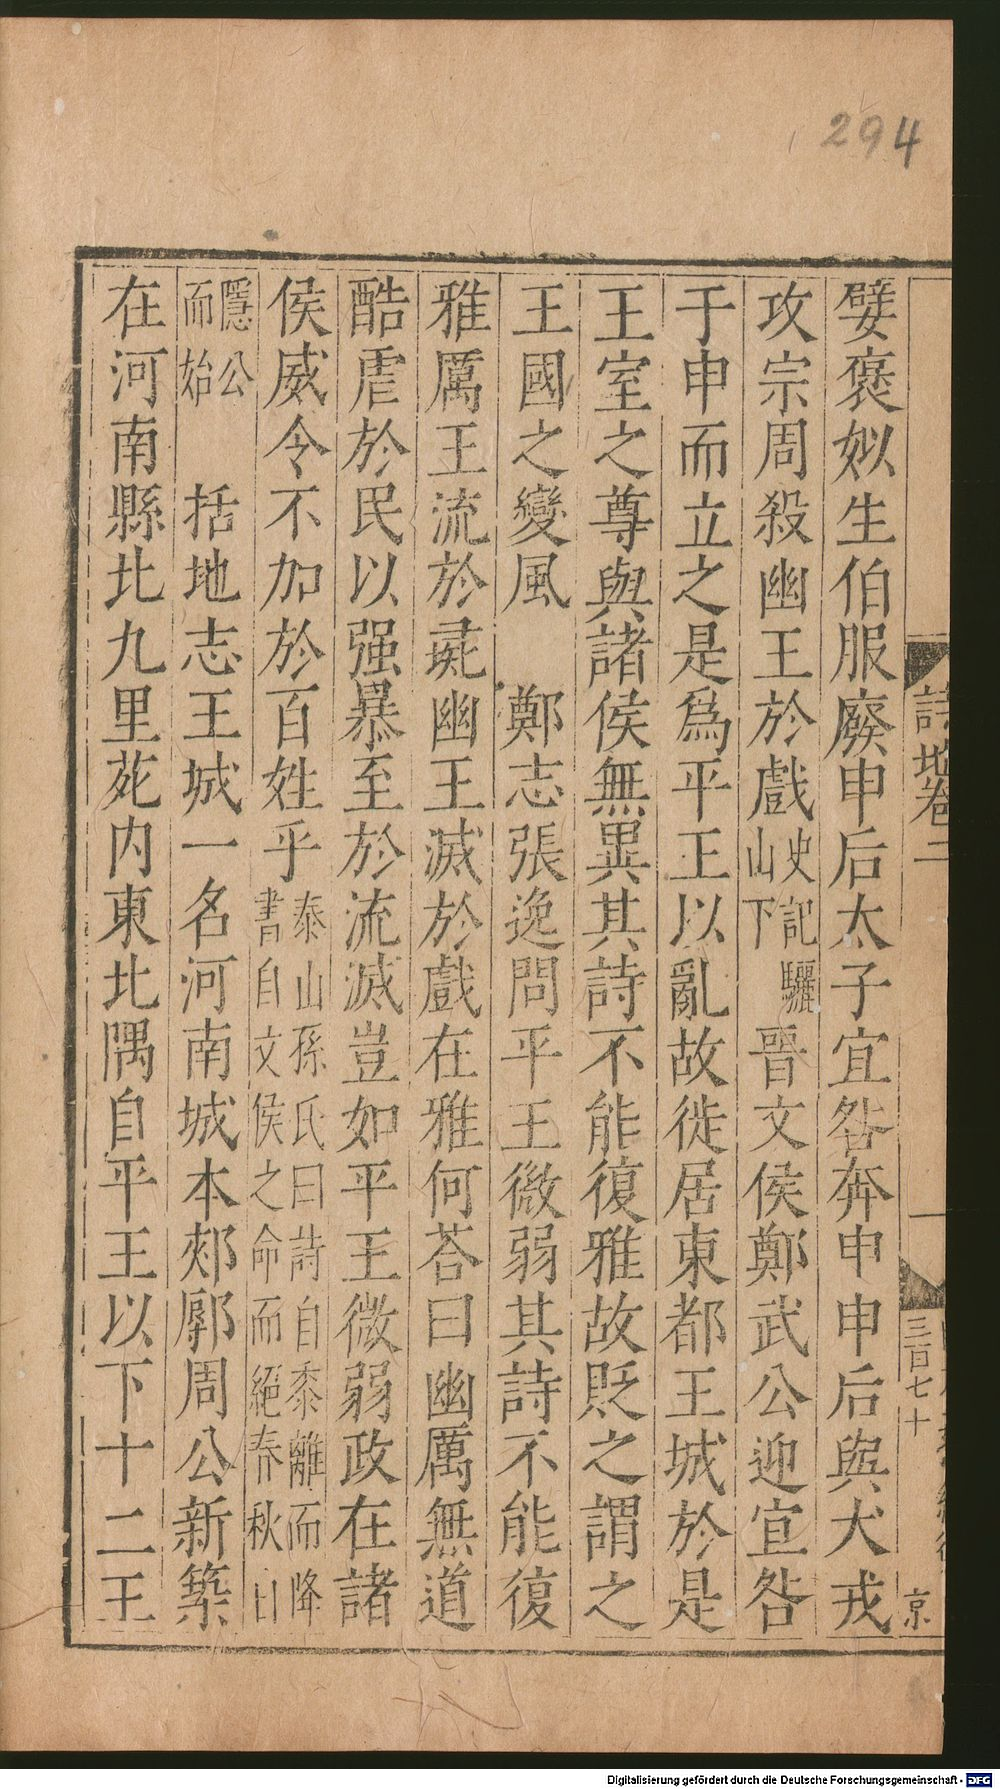 294
詩地卷二
一
三百七十
京
嬖褒姒生伯服廢申后太子宜咎奔申申后與犬戎
攻宗周殺幽王於戲史記驪山下晉文侯鄭武公迎宜咎
于申而立之是爲平王以亂故徙居東都王城於是
王室之尊與諸侯無異其詩不能復雅故貶之謂之
王國之變風　鄭志張逸問平王微弱其詩不能復
雅厲王流於彘幽王滅於戲在雅何荅曰幽厲無道
酷虐於民以强暴至於流滅豈如平王微弱政在諸
侯威令不加於百姓乎泰山孫氏曰詩自黍離而降書自文侯之命而絕春秋自
隱公而始　括地志王城一名河南城本郟鄏周公新築
在河南縣北九里苑内東北隅自平王以下十二王
Digitalisierung gefördert durch die Deutsche Forschungsgemeinschaft - DFG